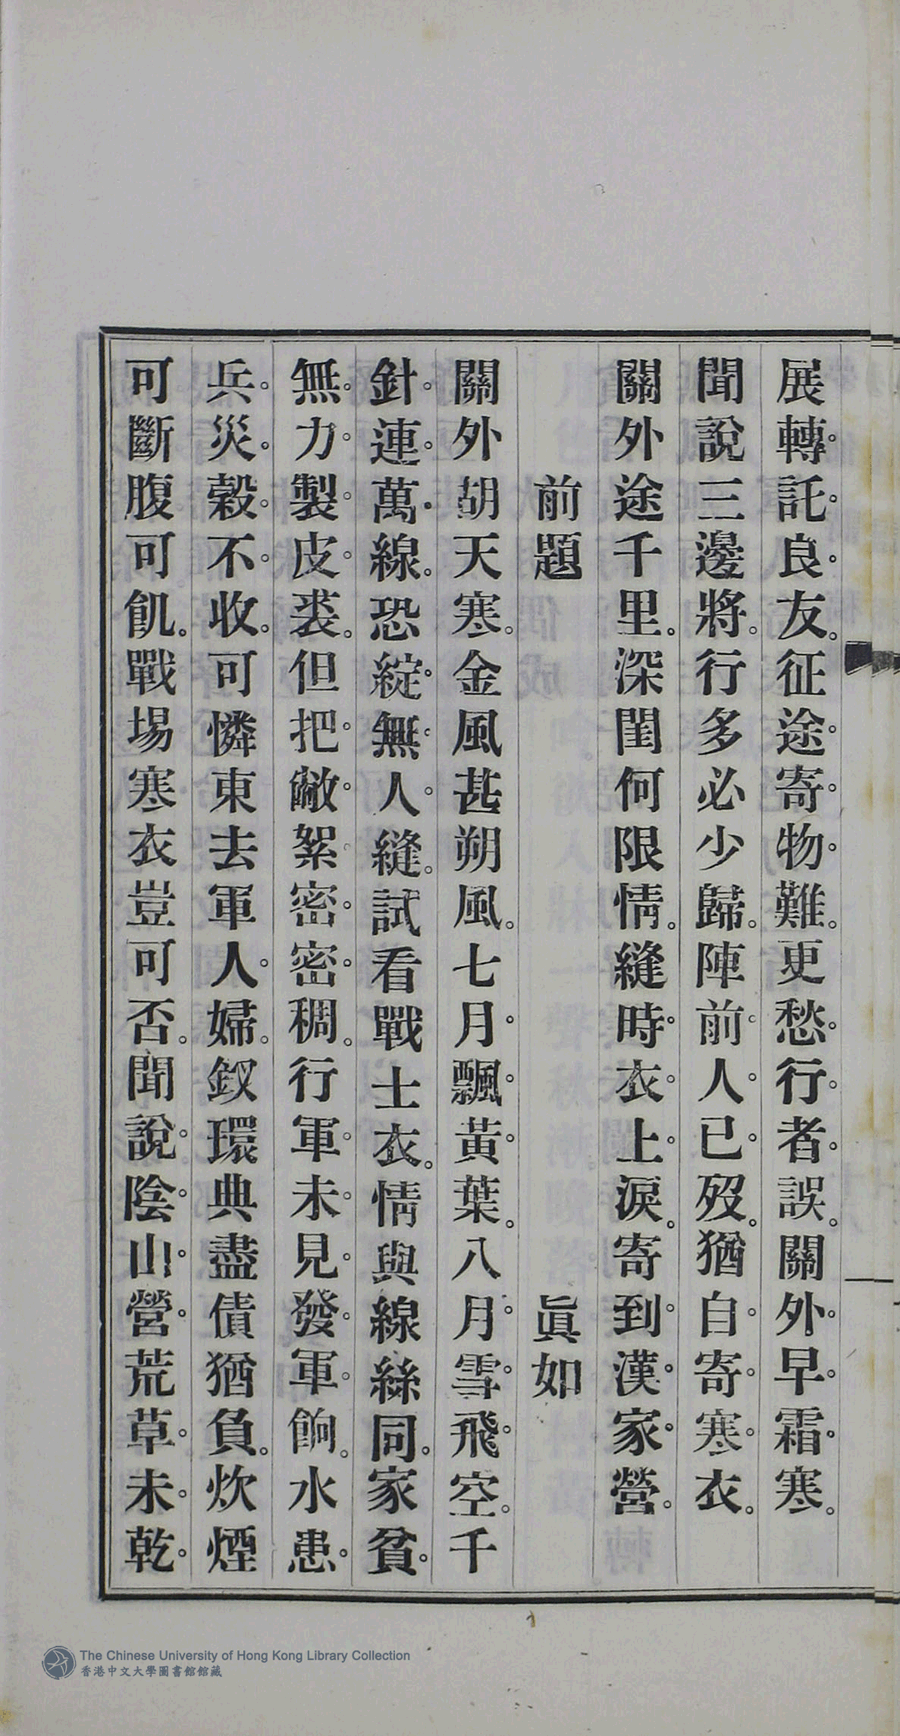 展轉託良友。征途寄物難。更愁行者誤。關外早霜寒。
聞說三邊將。行多必少歸。陣前人已歿。猶自寄寒衣。
關外途千里。深閨何限情。縫時衣上淚。寄到漢家營。
前題 眞如
關外胡天寒。金風甚朔風。七月飄黃葉。八月雪飛空。千
針連萬線。恐綻無人縫。試看戰士衣。情與線絲同。家貧
無力製皮裘。但把敝絮密密稠。行軍未見發軍餉。水患
兵災穀不收。可憐東去軍人婦。釵環典盡債猶負。炊煙
可斷腹可飢。戰場寒衣豈可否。聞說陰山營荒草未乾
The Chinese University of Hong Kong Library Collection
香港中文大學圖書館館藏